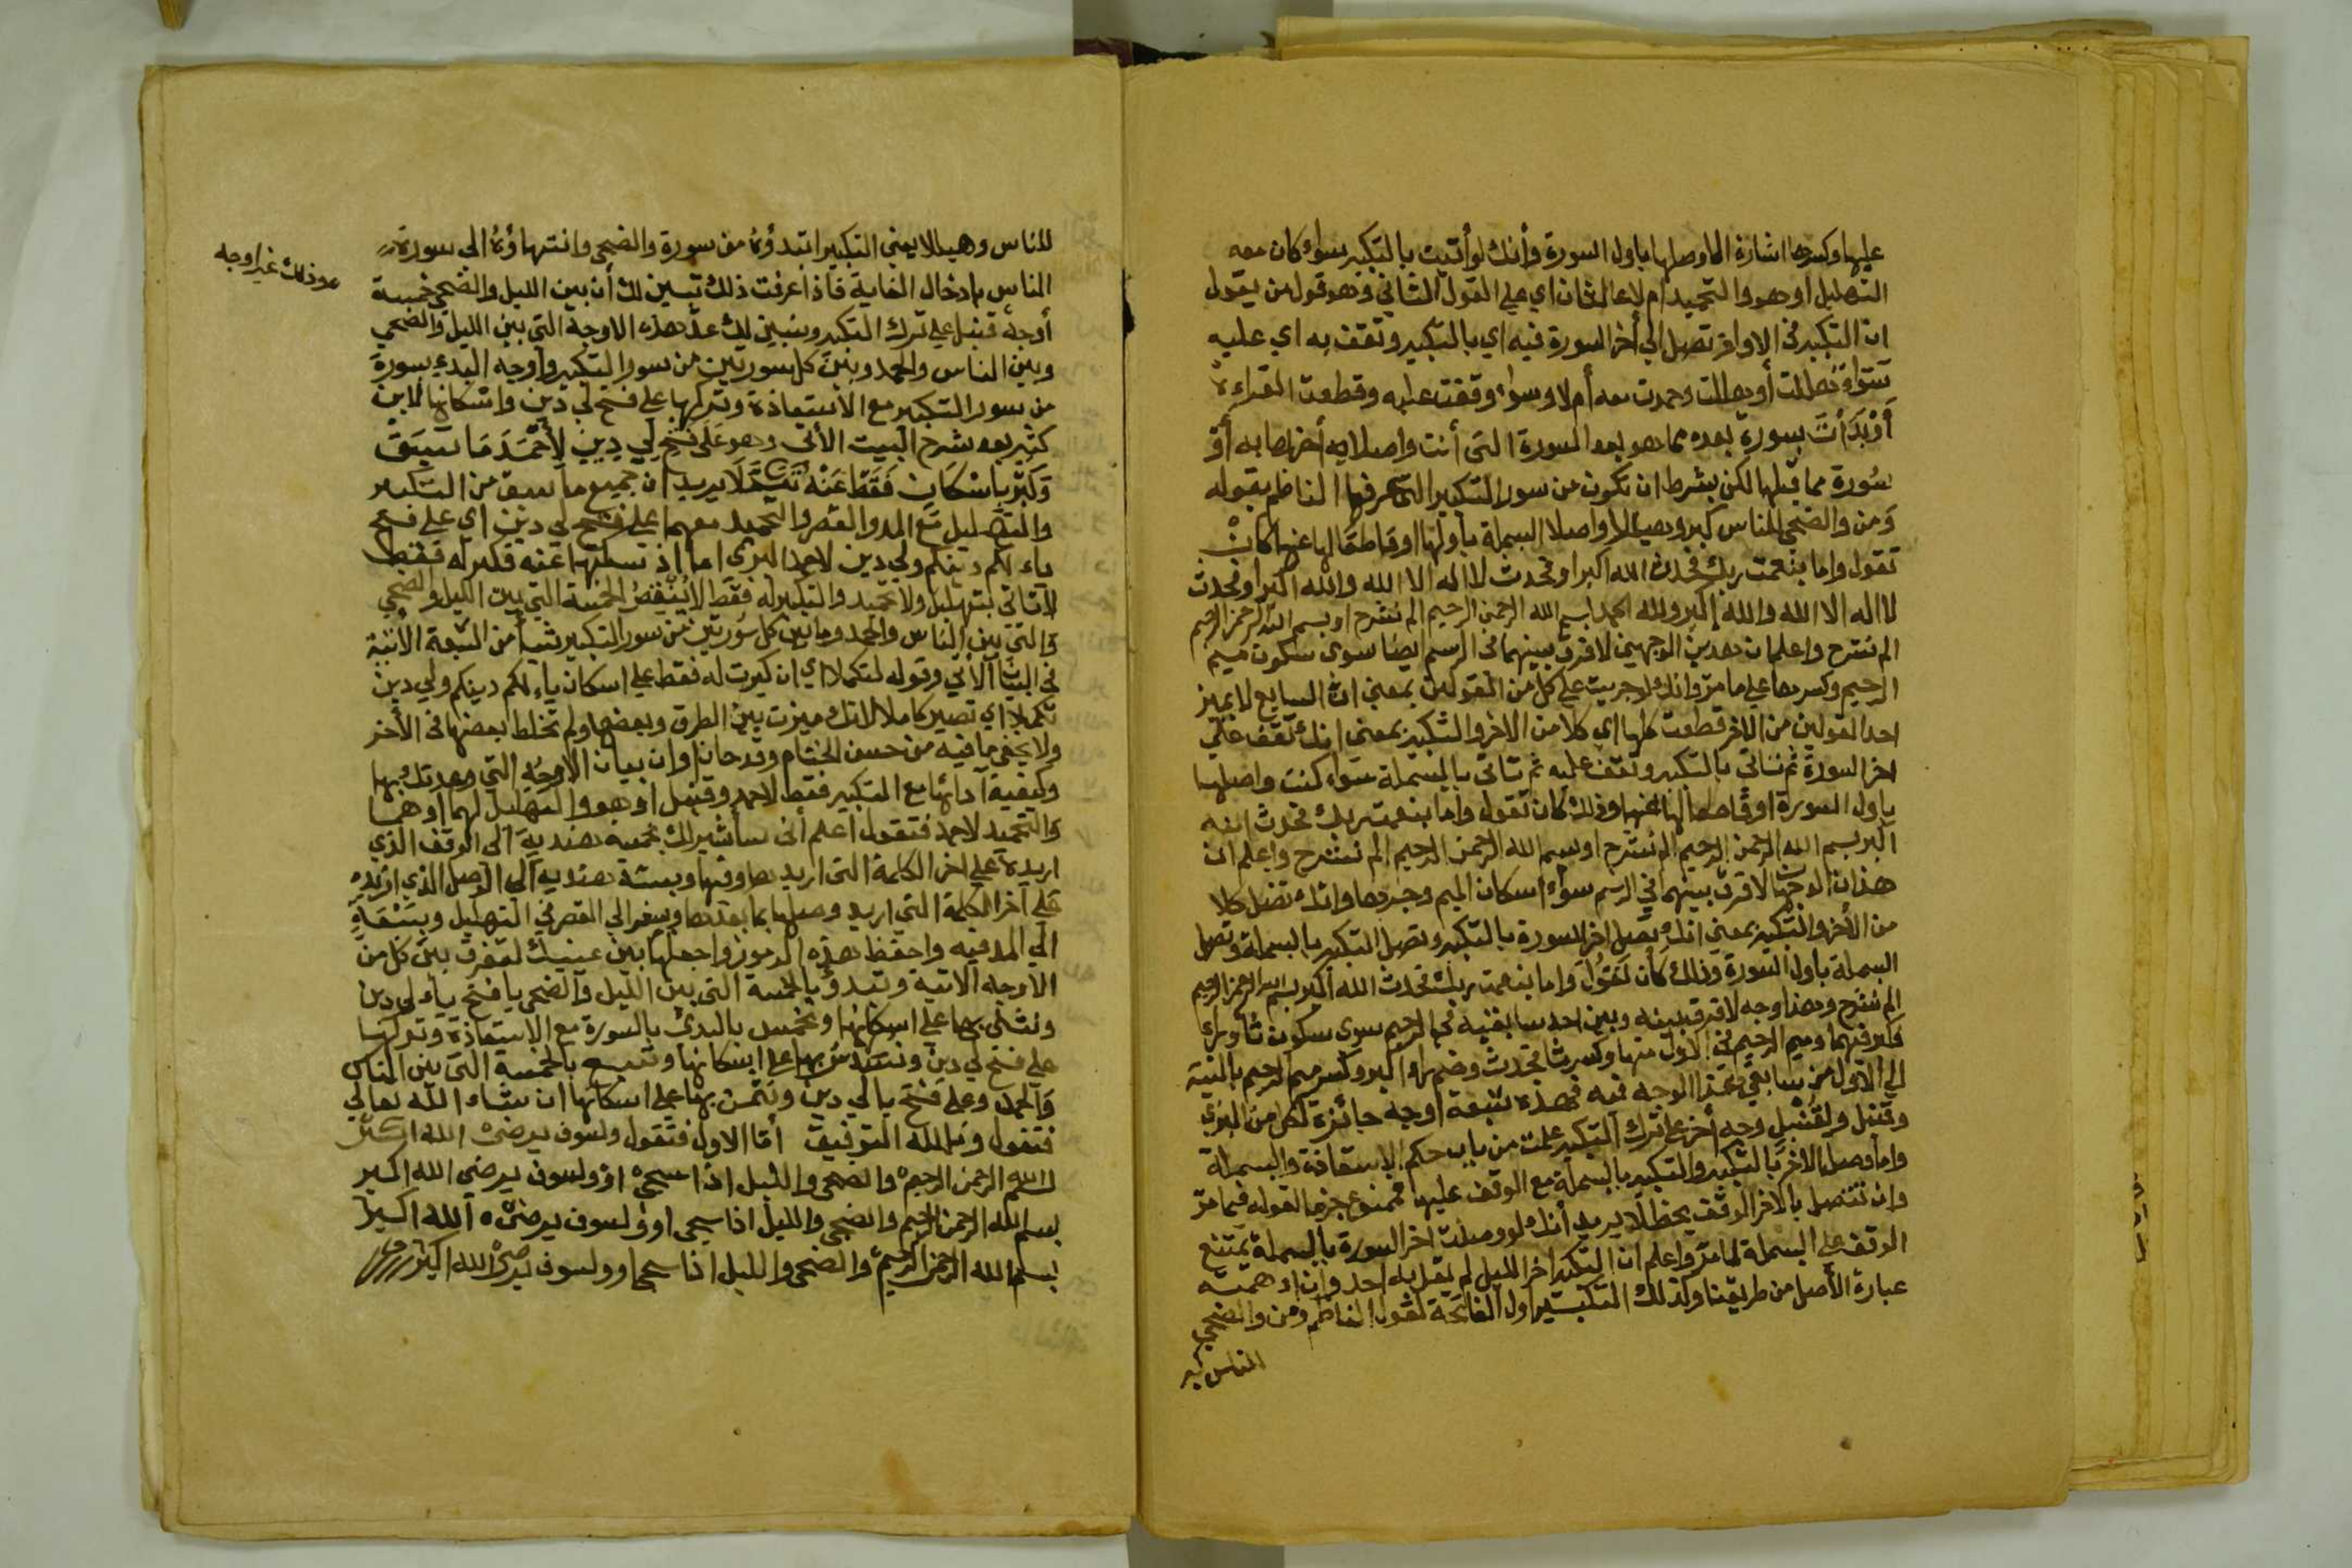 عليها وكسرها اشارة الى وصلها باول السورة وأنك لو أتيت بالتكبير سواء كان معه
التهليل او هو والتحميد ام لا على الثان اي على القول الثاني وهو قول من يقول
ان التكبير في الاواخر تصل الى أخر السورة فيه اي بالتكبير وتقف به اي عليه
سَوَاء هللت أو هللت وحمدت معه أم لا وسواء وقفت عليه وقطعت القراءة
أَوْبَدَأْتَ بسورة بعده مما هو بعد السورة التي أنت واصلا به أخرها به أو
سُورة مما قبلها لكن بشرط ان تكون من سور التكبير التي عرفها الناظم بقوله
وَمن والضحى للناس كبر وهيللا او واصلا البسملة باولها او قاطعا لها عنها كأنْ
تقول واما بنعمت ربك فحدث الله اكبر او فحدث لا اله الا الله والله اكبر او فحدث
لا اله الا الله والله اكبر ولله الحمد بسم الله الرحمن الرحيم الم نشرح او بسم الله الرحمن الرحيم
الم نشرح واعلم ان هذين الوجهين لا فرق بينهما في الرسم ايضا سوى سكون ميم
الرحيم وكسرها على ما مرّ وانك لو جريت على كل من القولين بمعنى ان السامع لا يميز
احد القولين من الاخر قطعت كلها اي كلا من الاخر والتكبير بمعنى انك تقف على
اخر السورة ثم تاتي بالتكبير وتقف عليه ثم تاتي بالبسملة سَواء كنت واصلها
باول السورة او قاطعا لها عنها وذلك كان تقول واما بنعمت ربك فحدث الله
اكبر بسم الله الرحمن الرحيم الم نشرح او بسم الله الرحمن الرحيم الم نشرح واعلم ان
هذان الوجهان لا فرق بينهما في الرسم سواء اسكان الميم وجرها وانك تصل كلا
من الأخر والتكبير بمعنى انك تصل اخر السورة بالتكبير وتصل التكبير بالبسملة وتصل
البسملة باول السورة وذلك كأن تَقُولَ واما بنعمت ربك فحدث الله اكبر بسم الله الرحمن الرحيم
الم نشرح وهذا وجه لا فرق بينه وبين احد سابقيه في الرحيم سوى سكون ثا وراء
فاكبر فيهما وميم الرحيم في الاول منها وكسر ثا فحدث وضم راء اكبر وكسر ميم الرحيم بالنسبة
الى الاول من سابقي هذا الوجه فيه فهذه سَبعة أوجه جائزة لكل من البزي
وقنبل ولِقُنْبُل وجه أخر على ترك التكبير علمت من باب حكم الاستعاذة والبسملة
واما وصل الاخر بالتكبير والتكبير بالبسملة مع الوقف عليها فممنوع جزما لقوله فيما مرّ
وان تتصل بالاخر الوقف يحظلا يريد أنك لو وصلت اخر السورة بالبسملة يمتنع
الوقف على البسملة لما مرّ واعلم ان التكبير اخر الليل لم يقل به احد وان اوهمته
عبارة الأصل من طريقنا وكذلك التكبير اول الفاتحة لقول الناظم ومن والضحى
للناس كبر
للناس وهيللا يعني التكبير ابتدؤه من سورة والضحى وانتهاؤه الى سورة
الناس بادخال الغاية فاذا عرفت ذلك تبين لك أن بين الليل والضحى خمسة
وذلك غير اوجه
أوجه قنبل على ترك التكبير وسنبين لك عدّ هذه الاوجه التي بين الليل والضحى
وبين الناس والحمد وبين كل سورتين من سور التكبير وأوجه البدء بسورة
من سور التكبير مع الاستعاذة وتركها على فتح لي دين واسكانها لابن
كثير بعد شرح البيت الأتي وهو عَلَى فتح لِي دِينِ لِأَحْمَدَ مَا سَبَقَ
وَكَبِّر بِاسْكَانٍ فَقَطْ عَنْهُ تَكْمُلَا يريد ان جميع ما سبق من التكبير
والتهليل مَع المد والقصر والتحميد معهما على فتح لي دين اي على فتح
ياء لكم دينكم ولي دين لاحمد البزي اما اذ سكنتها عنه فكبر له فقط
لا تاتي بتهليل ولا تحميد والتكبير له فقط لا يُنْقِصُ الخمسة التي بين الليل والضحى
والتي بين الناس والحمد وما بين كل سورتين من سور التكبير شيأ من السّبعة الأتية
في البيان الأتي وقوله لتكملا اي ان كبرت له فقط على اسكان ياء لكم دينكم ولي دين
تكملا اي تصير كاملا لانك ميزت بين الطرق وبعضها ولم تخلط بعضها في الأخر
ولا يخفى ما فيه من حسن الختام وقد حان اوان بيان الاوجه التي وعدتك بها
وكيفية آدائها مع التكبير فقط لاحمد وقنبل او هو والتهليل لهما أو هما
والتحميد لاحمد فنقول اعلم أني سأشير لك بخمسة هندية الى الوقف الذي
اريده على اخر الكلمة التي اريد وقفها وبستة هندية الى الوصل الذي اريده
على آخر الكلمة التي اريد وصلها بما بعدها وبصفر الى القصر في التهليل وبسَبْعَةٍ
الى المد فيه واحفظ هذه الرموز واجعلها بين عينيك لتفرق بين كل من
الأوجه الاتية ونبدؤ بالخمسة التي بين الليل والضحى يا فتح ياء لي دين
ونثنى بها على اسكانها ونخمس بالبدئ بالسورة مع الاستعاذة وتركها
على فتح لي دين ونسَدِّسُ بها على اسكانها ونسبع بالخمسة التي بين الناس
والحمد وعلى فتح يا لي دين ونثمن بها على اسكانها ان شاء الله تعالى
فنقول وبالله التوفيق أمّا الاول فتقول ولسوف يرضىْ الله اكبر
بسم الله الرحمن الرحيم والضحى والليل اذا سجى او ولسوف يرضى الله اكبر
بسم الله الرحمن الرحيم والضحى والليل اذا سجى او ولسوف يرضى الله اكبر
بسم الله الرحمن الرحيم والضحى والليل اذا سجى او ولسوف يرضى الله اكبر